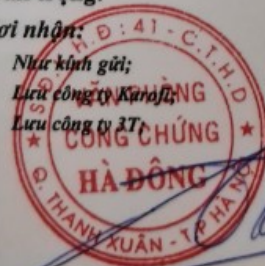 ơi nhận:
Như kính gửi;
Lưu công ty Karofi;
Lưu công ty 3T;
S.Đ.K.H.Đ: 41 - C.T.H.D
VĂN PHÒNG
CÔNG CHỨNG
HÀ ĐÔNG
Q. THANH XUÂN - T.P HÀ NỘI